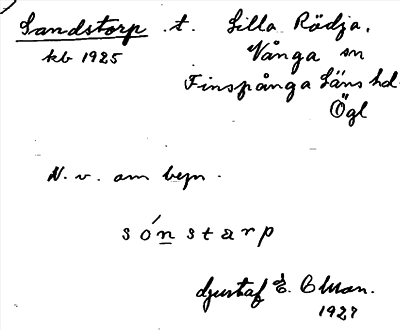 Sandstorp . t. Lilla Rödja.
kb 1925 Vånga sn
Finspånga Läns hd.
Ögl
N. v. om byn.
sónstarp
Gustaf E. Olsson.
1927